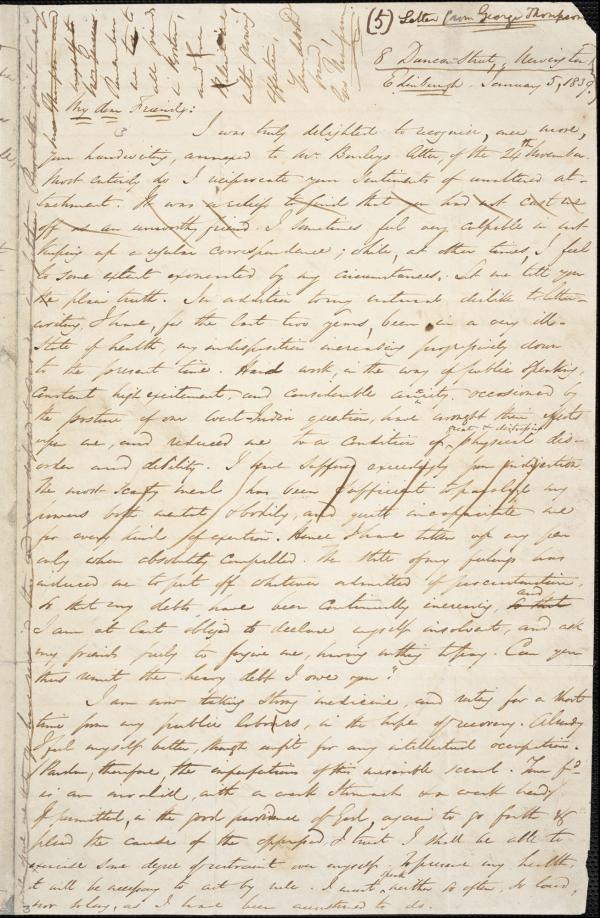 (5) Letter from George Thompson
8 Duncan Street, Newington
Edinburgh January 5, 1839.
My dear Friends:
I was truly delighted to recognise, once more,
your handwriting, annexed to Mr. Burleys letter, of the 24th November.
Most entirely do I reciprocate your sentiments of unaltered at-
tachment. It was a relief to find that you had not cast me
off as an unworthy friend. I sometimes feel very culpable in not
keeping up a regular correspondence; while, at other times, I feel
to some extent exonerated by my circumstances. Let me tell you
the plain truth. In addition to my natural dislike to letter-
writing, I have, for the last two years, been in a very ill-
state of health, my indisposition increasing progressively down
to the present time. Hard work, in the way of public speaking,
constant high excitement, and considerable anxiety, occasioned by
the posture of our West-India question, have wrought their effects
upon me, and reduced me to a condition of great & distressing physical dis-
order and debility. I have suffered exceedingly from indigestion
The most scanty meal has been sufficient to paralyse my
powers both mental & bodily, and quite incapacitate me
for every kind of exertion. Hence I have taken up my pen
only when absolutely compelled. The state of my feelings has
induced me to put off whatever admitted of procrastination,
so that my debts have been continually increasing, and so that
I am at last obliged to declare myself insolvent, and ask
my friends freely to forgive me, having nothing to pay. Can you
thus remit the heavy debt I owe you?
I am now taking strong medicine, and resting for a short
time from my public labours, in the hope of recovery. Already
I feel myself better, though unfit for any intellectual occupation.
Pardon, therefore, the imperfections of this miserable scrawl. Your fd.
is an invalid, with a weak stomach & a weak head.
If permitted, in the good providence of God, again to go forth &
plead the cause of the oppressed, I trust I shall be able to
exercise some degree of restraint over myself. To preserve my health
it will be necessary to act by rule. I must speak neither so often, so loud,
nor so long, as I have been accustomed to do.